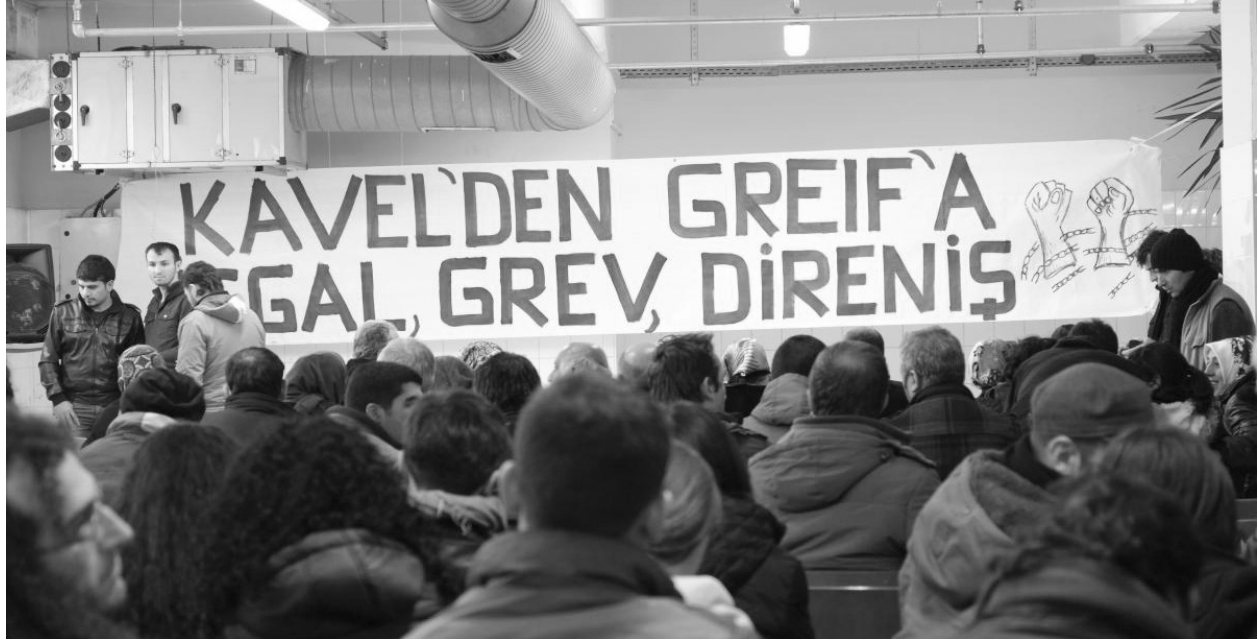 KAVEL'DEN GREIF'A
İŞGAL, GREV, DİRENİŞ